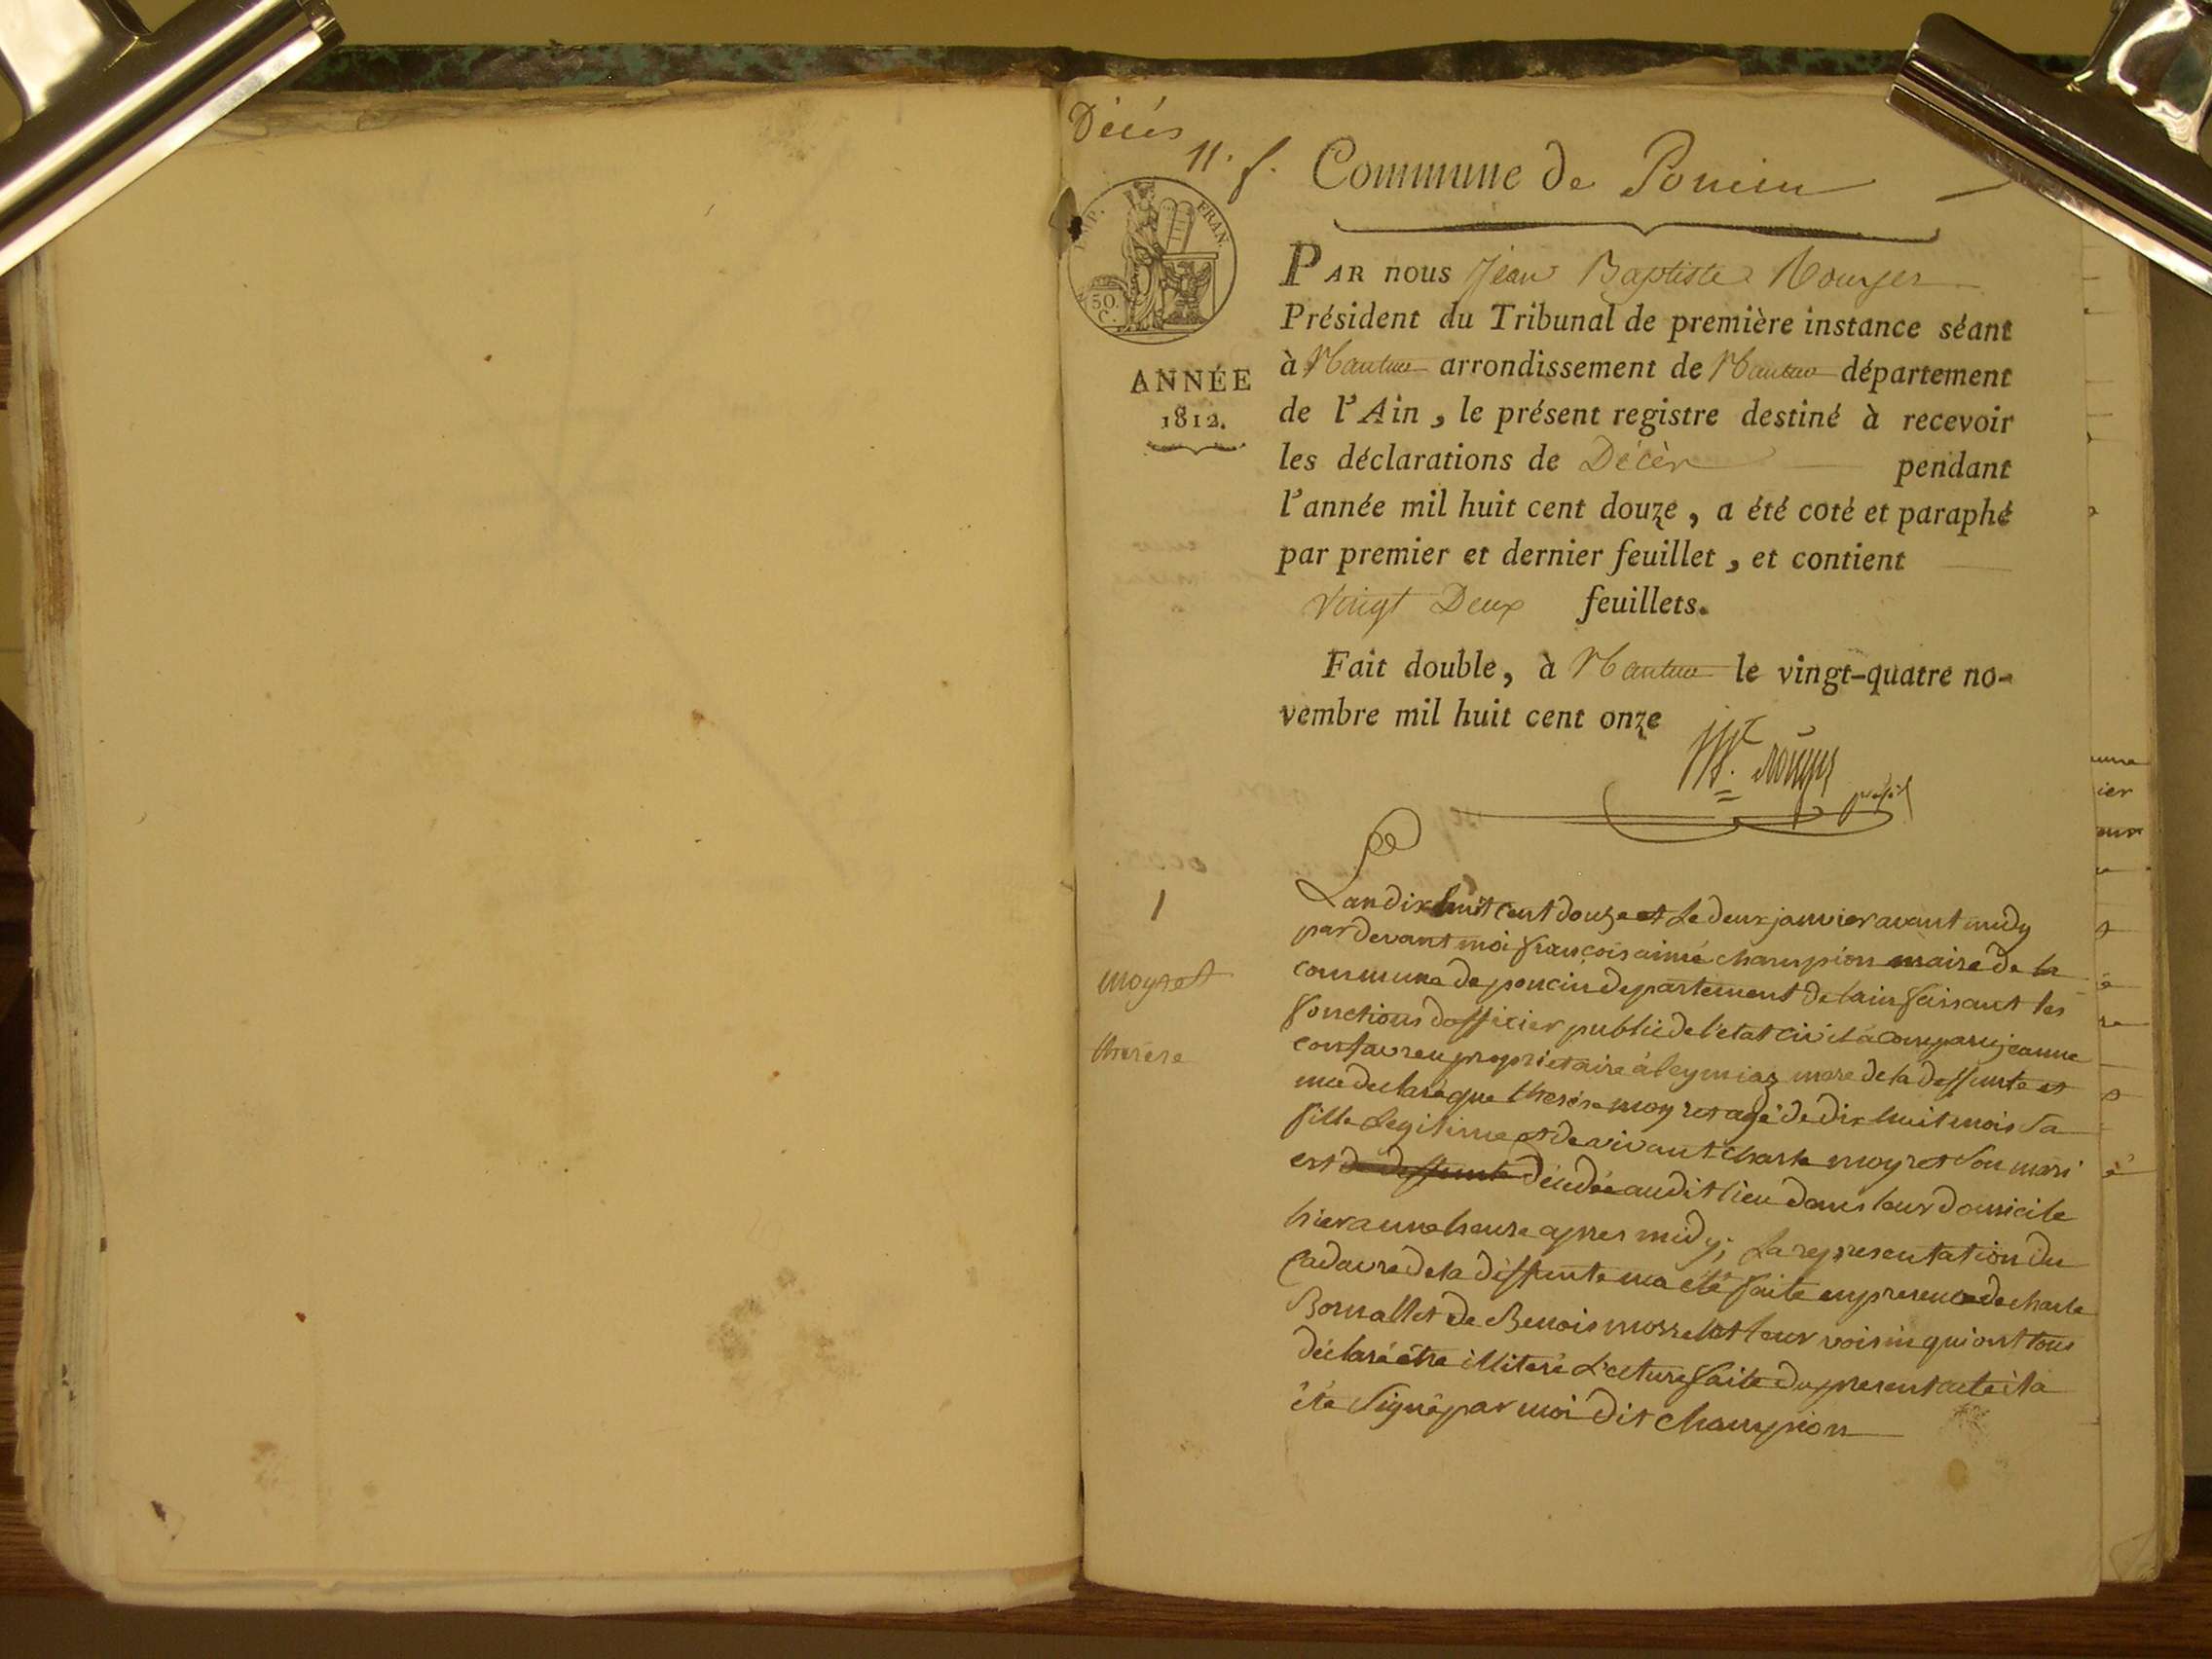 Décés
11. f.
Commune de Poncin
IMP. FRAN.
50.
C.
ANNÉE
1812.
PAR nous Jean Baptiste Rouyer
Président du Tribunal de première instance séant
à Nantua arrondissement de Nantua département
de l'Ain, le présent registre destiné à recevoir
les déclarations de Décès pendant
l'année mil huit cent douze, a été coté et paraphé
par premier et dernier feuillet, et contient
Vingt Deux feuillets.
Fait double, à Nantua le vingt-quatre no-
vembre mil huit cent onze
1
moyret
therese
Lan dix huit cent douze et le deux janvier avant midy
par devant moi françois aimé champion maire de la
commune de poncin departement de lain faisant les
fonctions dofficier public de l'état civil a comparu jeanne
propriétaire à leymiaz mere de la deffunte et
ma declaré que therése moyret agé de dix huit mois sa
fille legitime et de vivant charle moyret son mari
est de deffunte décédée audit lieu dans leur domicile
hier a une heure apres midy; la representation du
cadavre de la deffunte ma été faite en presence de charle
Bornallet de Benois leur voisin qui ont tous
déclaré étre illiteré L'ecture faite du present acte il a
été signé par moi dit champion